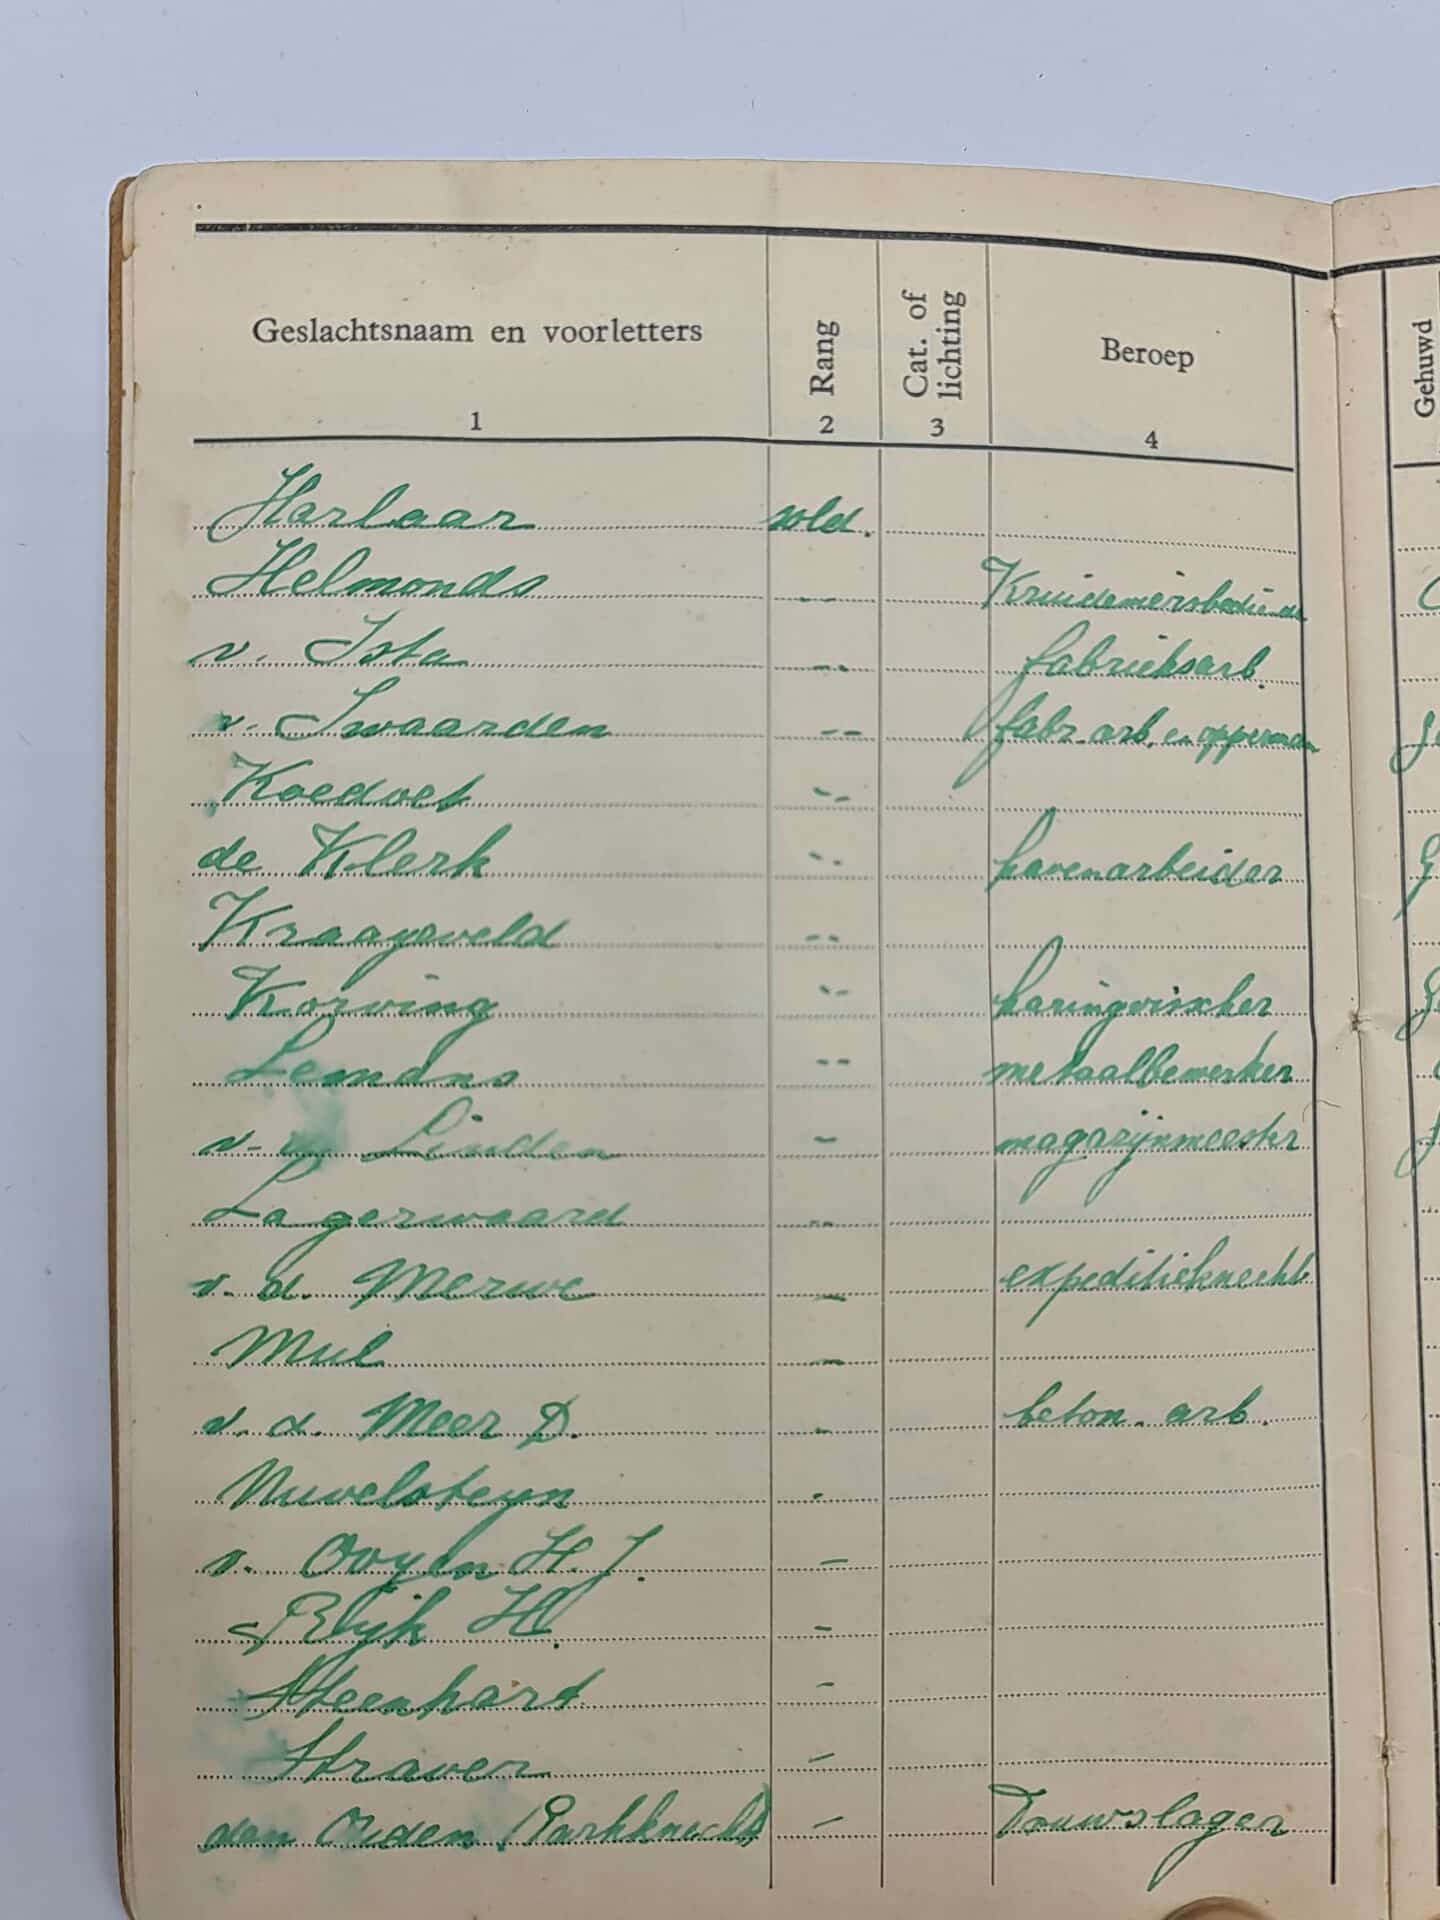 Geslachtsnaam en voorletters Rang Cat. of lichting Beroep Gehuwd
1 2 3 4
Harlaar sold.
Helmonds -- Kruideniersbediende
v. Ista -- fabrieksarb.
v. Iwaarden -- fabr. arb. en opperman
Koedoet --
de Klerk -- havenarbeider
Kraayeveld --
Korving -- haringvisscher
Lemans -- metaalbewerker
v. Linden - magazijnmeester
Lagerwaard --
v. d. Merwe -- expeditieknecht
Mul --
v. d. Meer D. - beton. arb.
Nuvelsteyn -
v. Ooyen H. J. -
Rlijk H. -
Steenhart -
Straver -
den Ouden (Parkknecht) - Touwslager